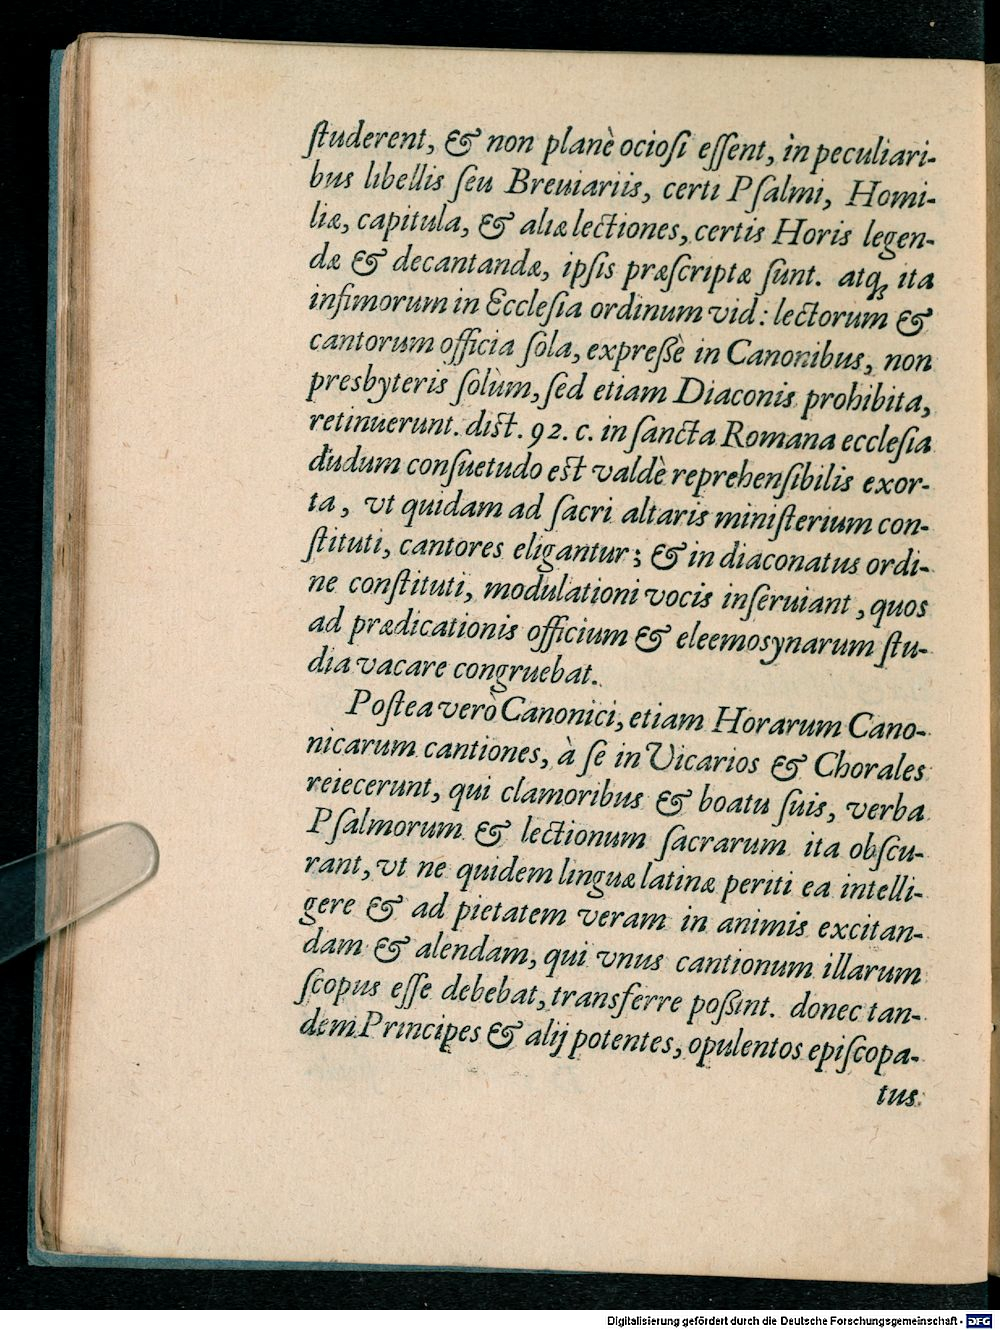 ſtuderent, & non planè ocioſi eſſent, in peculiari-
bus libellis ſeu Breuiariis, certi Pſalmi, Homi-
liæ, capitula, & aliæ lectiones, certis Horis legen-
dæ & decantandæ, ipſis præſcriptæ ſunt. atq; ita
infimorum in Eccleſia ordinum vid: lectorum &
cantorum officia ſola, expreßè in Canonibus, non
presbyteris ſolùm, ſed etiam Diaconis prohibita,
retinuerunt. diſt. 92. c. in ſancta Romana eccleſia
dudum conſuetudo eſt valdè reprehenſibilis exor-
ta, vt quidam ad ſacri altaris miniſterium con-
ſtituti, cantores eligantur; & in diaconatus ordi-
ne conſtituti, modulationi vocis inſeruiant, quos
ad prædicationis officium & eleemosynarum ſtu-
dia vacare congruebat.
Poſtea verò Canonici, etiam Horarum Cano-
nicarum cantiones, à ſe in Vicarios & Chorales
reiecerunt, qui clamoribus & boatu ſuis, verba
Pſalmorum & lectionum ſacrarum ita obſcu-
rant, vt ne quidem linguæ latinæ periti ea intelli-
gere & ad pietatem veram in animis excitan-
dam & alendam, qui vnus cantionum illarum
ſcopus eſſe debebat, transferre poßint. donec tan-
dem Principes & alij potentes, opulentos epiſcopa-
tus
Digitalisierung gefördert durch die Deutsche Forschungsgemeinschaft - DFG